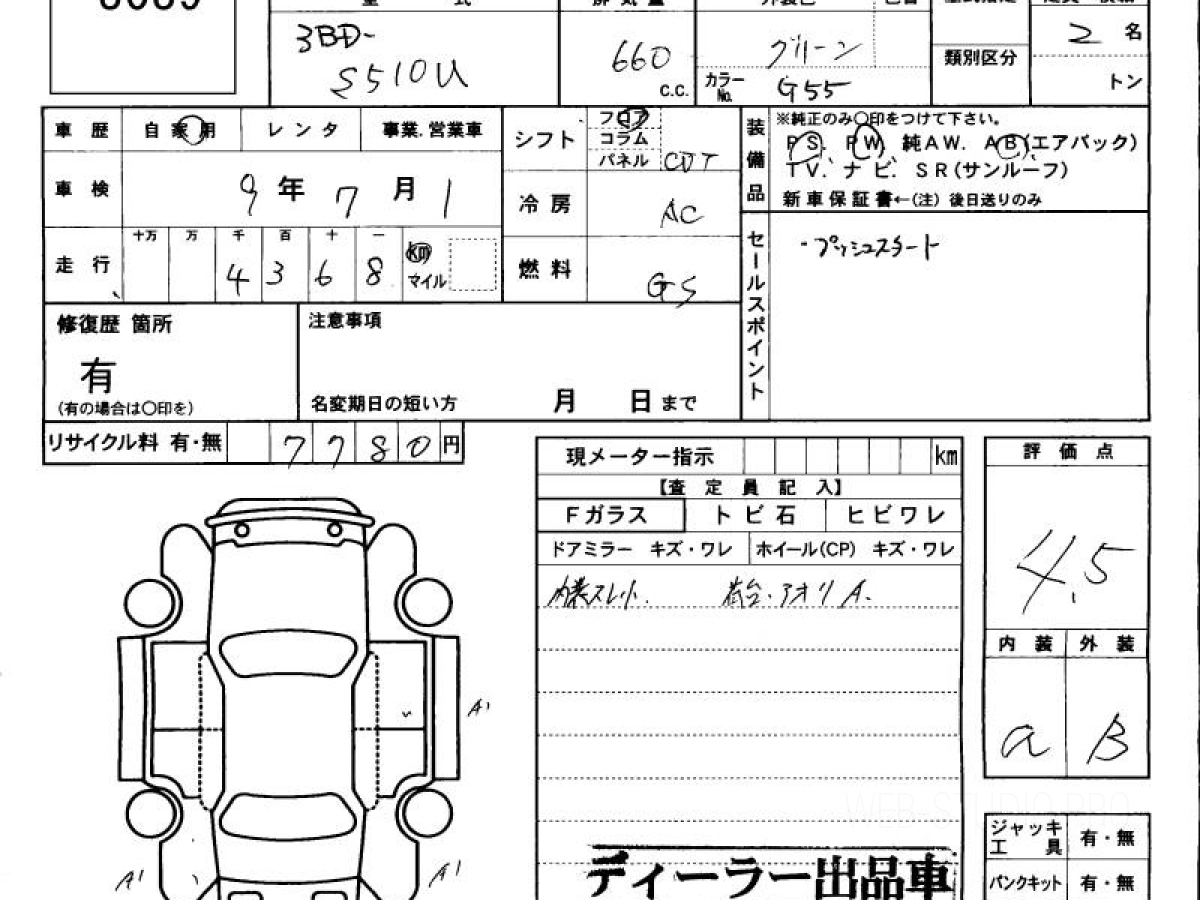 型 式
3BD-
S510U
660
c.c.
グリーン
カラー
No.
G55
類別区分
2 名
トン
車 歴 自家用 レンタ 事業.営業車
車 検 9 年 7 月 1
走 行
十万 万 千 百 十 一
4 3 6 8
km
マイル
シフト
フロア
コラム
パネル
CVT
冷 房 AC
燃 料 GS
装備品
※純正のみ〇印をつけて下さい。
PS. PW. 純AW. AB(エアバック)
TV. ナビ. SR(サンルーフ)
新車保証書←(注) 後日送りのみ
セールスポイント
・プッシュスタート
修復歴 箇所
有
(有の場合は〇印を)
注意事項
名変期日の短い方 月 日 まで
リサイクル料 有・無 7780 円
現メーター指示 km
【査 定 員 記 入】
Fガラス トビ石 ヒビワレ
ドアミラー キズ・ワレ ホイール(CP) キズ・ワレ
内装スレ小. 荷台・アオリ A.
評 価 点
4.5
内 装 外 装
a B
A1
A1
A1
ジャッキ
工 具
有・無
パンクキット 有・無
WEB-STUDIO.PRO
ディーラー出品車